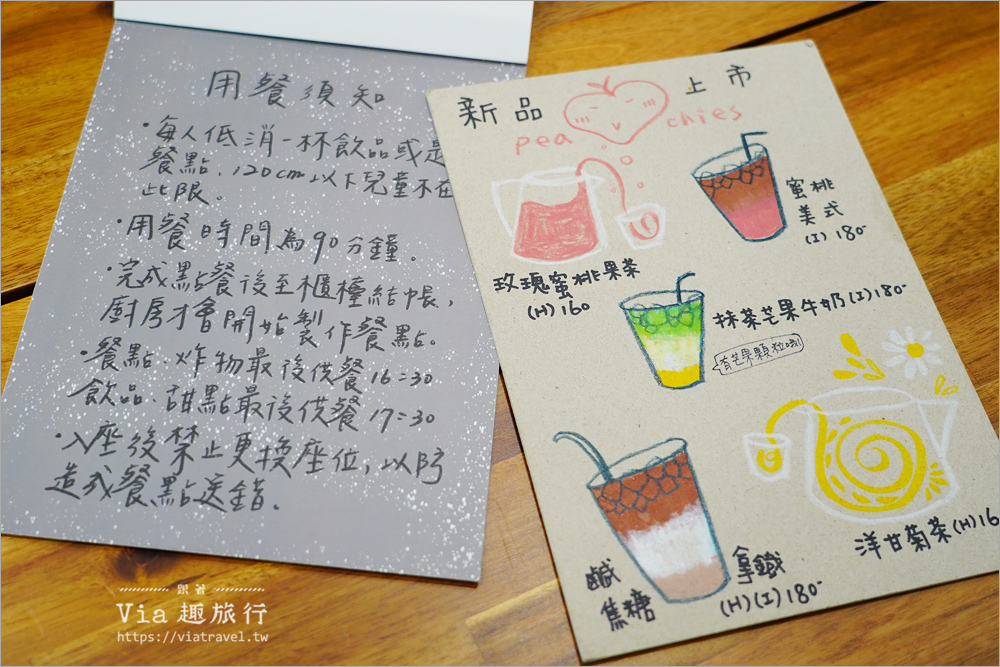 用餐須知
·每人低消一杯飲品或是
餐點.120cm以下兒童不在
此限。
·用餐時間為90分鐘。
·完成點餐後至櫃檯結帳,
廚房才會開始製作餐點。
·餐點.炸物最後供餐16:30
飲品.甜點最後供餐17:30
·入座後禁止更換座位,以防
造成餐點送錯。
新品上市
peachies
玫瑰蜜桃果茶
(H)160
蜜桃
美式
(I)180-
抹茶芒果牛奶(I)180-
有芒果顆粒哦!
洋甘菊茶(H)16
鹹
焦糖
拿鐵
(H)(I)180-
跟著
Via趣旅行
https://viatravel.tw